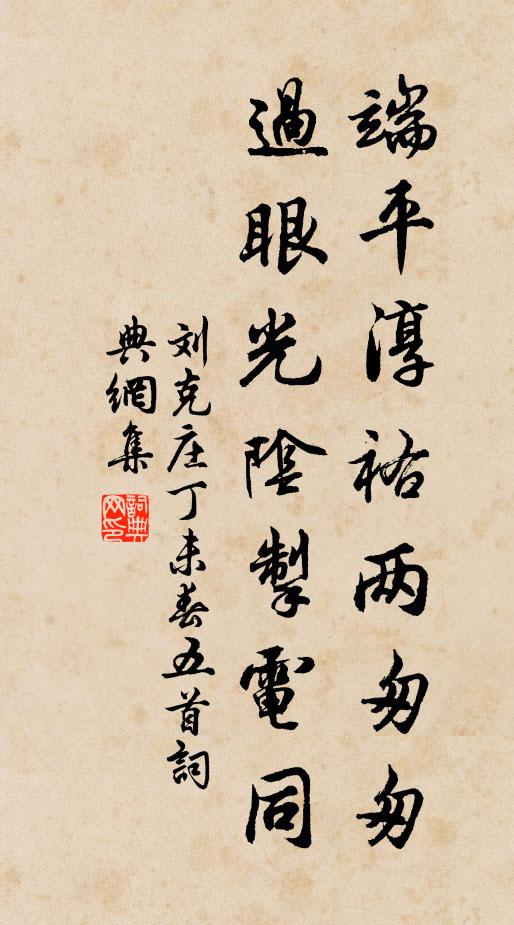 端平淳祐两匆匆
過眼光陰掣電同
刘克庄丁未春五首詞
典網集
詞典网印